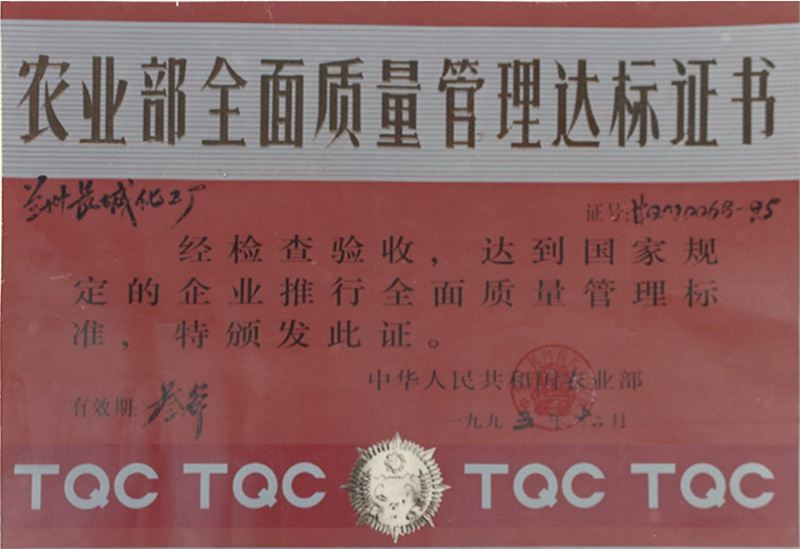 农业部全面质量管理达标证书
兰州长城化工厂
证号:
经检查验收，达到国家规
定的企业推行全面质量管理标
准，特颁发此证。
中华人民共和国农业部
有效期: 叁年
一九九五年十二月
TQC TQC TQC TQC